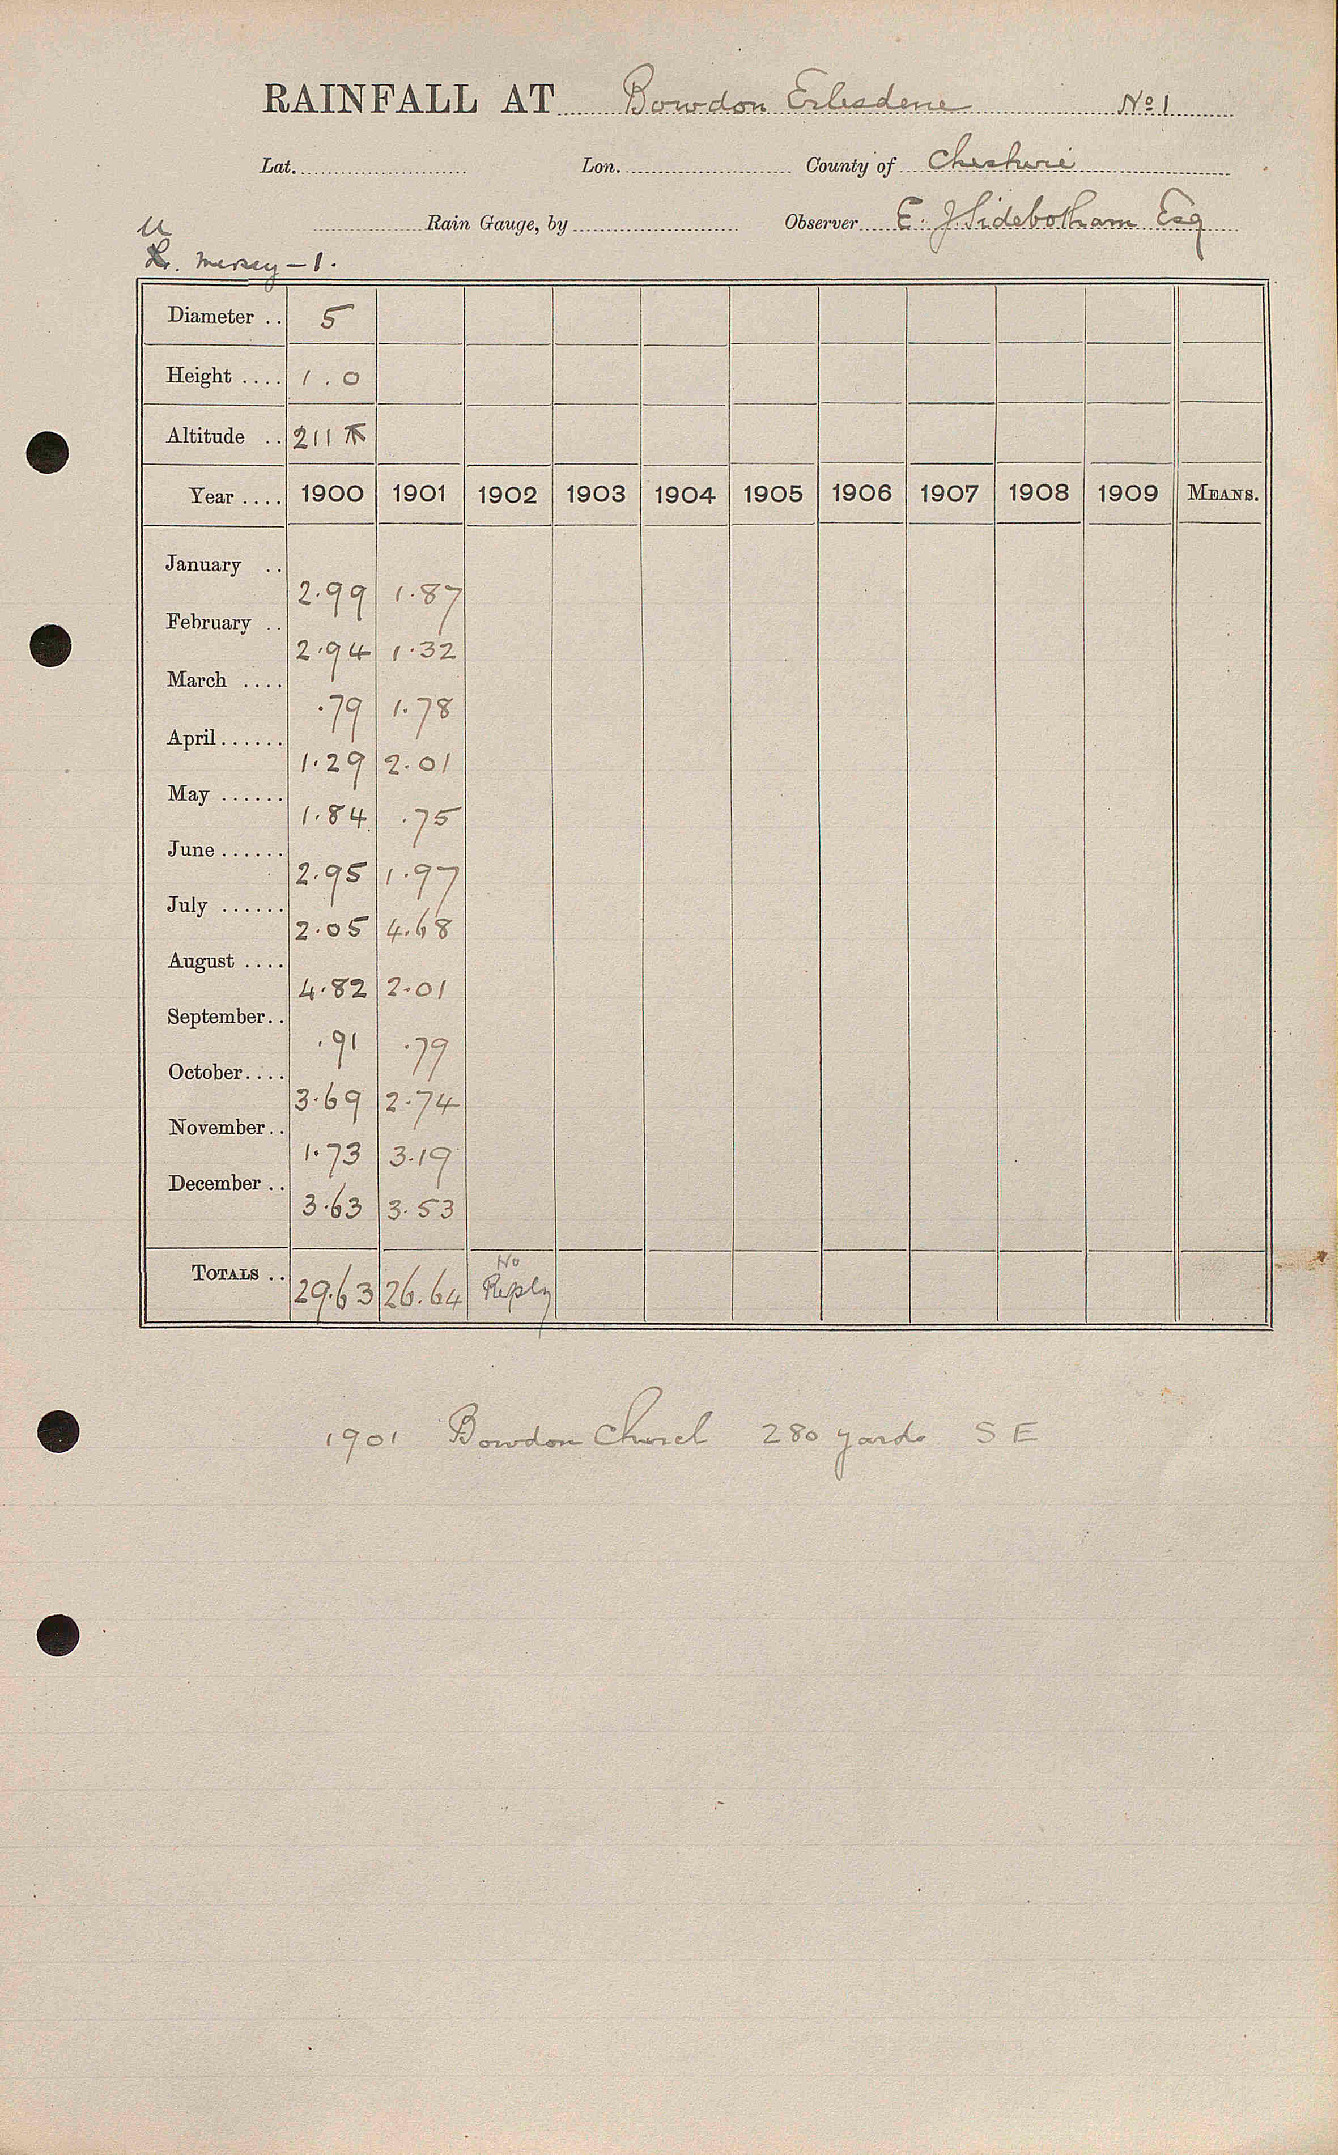 RAINFALL AT Bowdon Erlesdene No 1
Lat. Lon. County of Cheshire
Rain Gauge, by Observer E. J. Sidebotham Esq
U
Mersey – 1.
Diameter .. 5
Height .... 1 . 0
Altitude .. 211
Year .... 1900 1901 1902 1903 1904 1905 1906 1907 1908 1909 MEANS.
January ..
2.99 1.87
February ..
2.94 1.32
March ....
.79 1.78
April......
1.29 2.01
May ......
1.84 .75
June......
2.95 1.97
July ......
2.05 4.68
August ....
4.82 2.01
September..
.91 .79
October....
3.69 2.74
November..
1.73 3.19
December..
3.63 3.53
TOTALS .. 29.63 26.64 No Reply
1901 Bowdon Church 280 yards S E